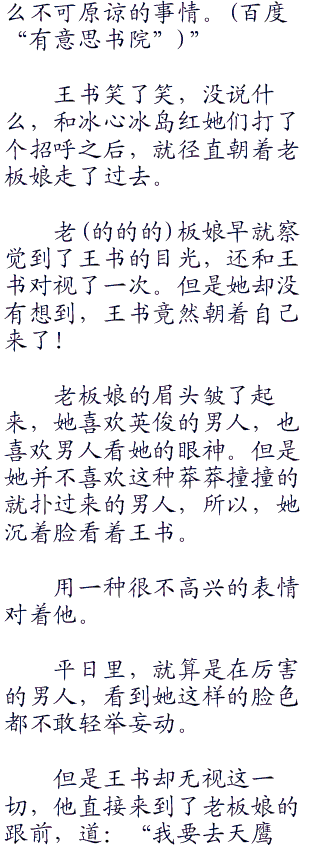 么不可原谅的事情。(百度
“有意思书院”)”
王书笑了笑，没说什
么，和冰心冰岛红她们打了
个招呼之后，就径直朝着老
板娘走了过去。
老(的的的)板娘早就察
觉到了王书的目光，还和王
书对视了一次。但是她却没
有想到，王书竟然朝着自己
来了！
老板娘的眉头皱了起
来，她喜欢英俊的男人，也
喜欢男人看她的眼神。但是
她并不喜欢这种莽莽撞撞的
就扑过来的男人，所以，她
沉着脸看着王书。
用一种很不高兴的表情
对着他。
平日里，就算是在厉害
的男人，看到她这样的脸色
都不敢轻举妄动。
但是王书却无视这一
切，他直接来到了老板娘的
跟前，道：“我要去天鹰